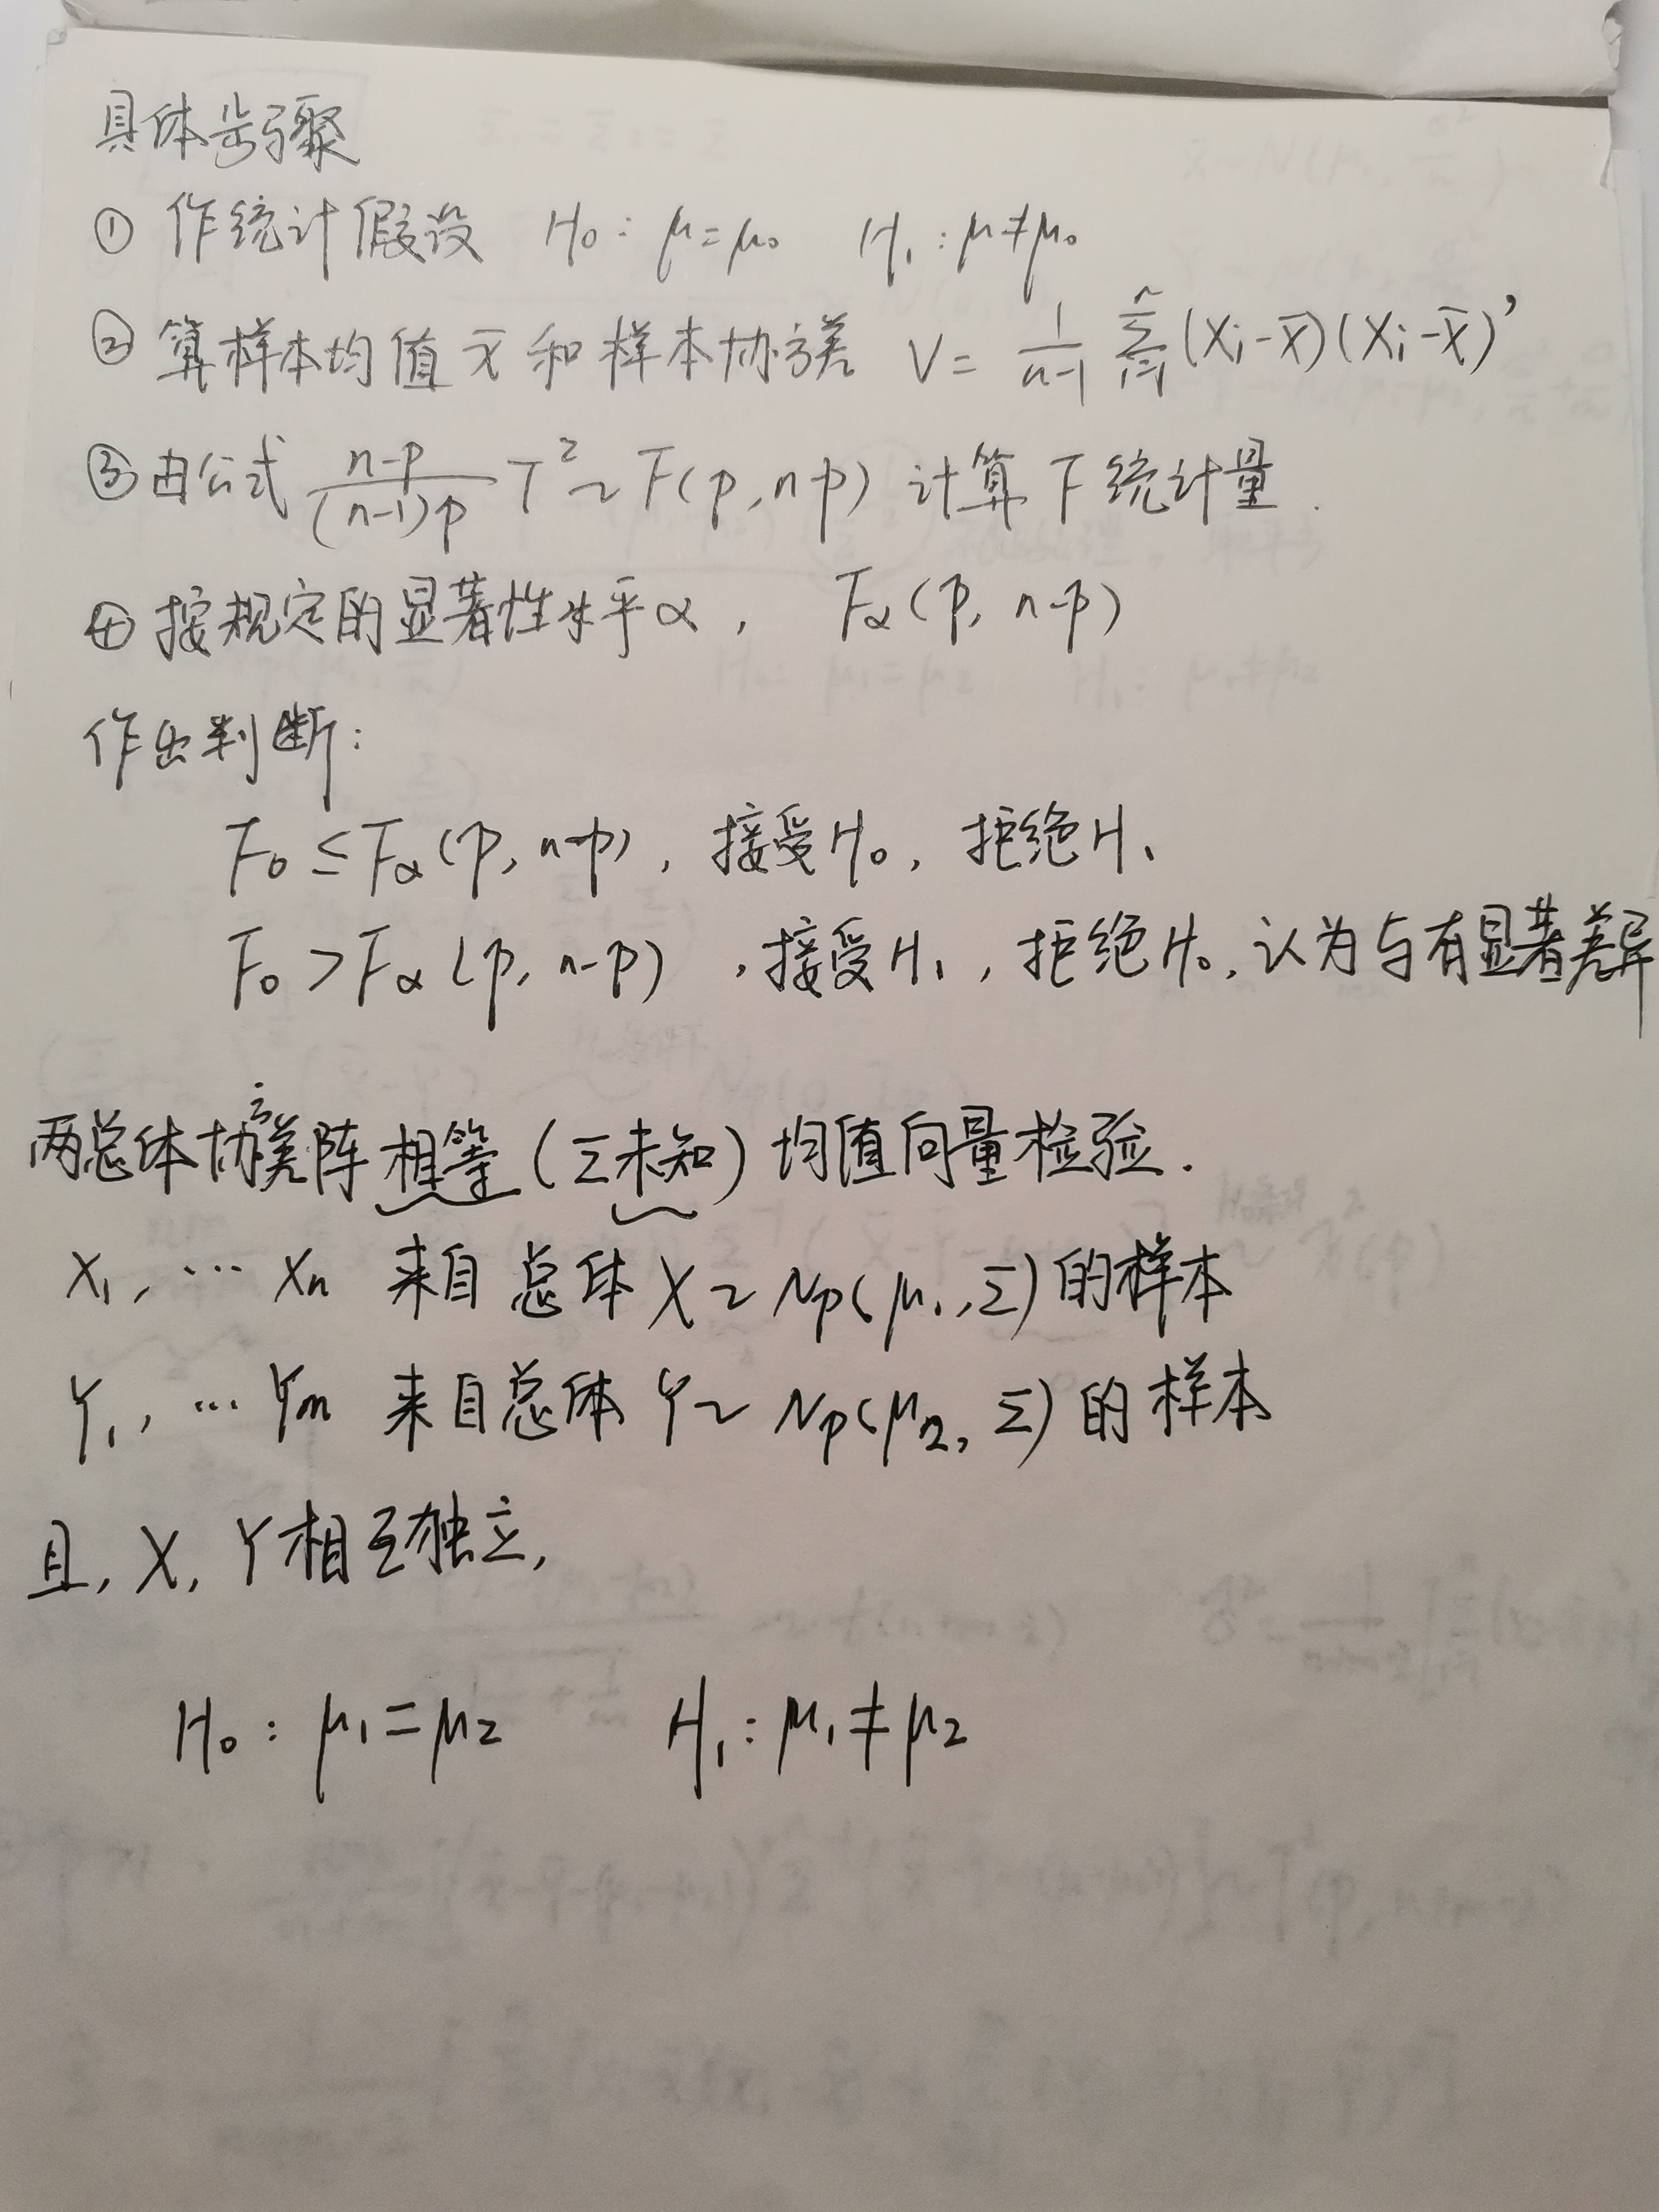 具体步骤
① 作统计假设 H₀: μ=μ₀ H₁: μ≠μ₀
② 算样本均值 x̄ 和样本协方差 V = 1/(n-1) Σ_{i=1}^{n} (Xi-X̄)(Xi-X̄)'
③ 由公式 (n-p)/((n-1)p) T² ~ F(p, n-p) 计算 F 统计量.
④ 按规定的显著性水平α, Fα(p, n-p)
作出判断:
F₀ ≤ Fα(p, n-p), 接受H₀, 拒绝H₁
F₀ > Fα(p, n-p), 接受H₁, 拒绝H₀, 认为与有显著差异
两总体协方差阵相等(Σ未知)均值向量检验.
X₁, … Xn 来自总体 X ~ Np(μ₁, Σ) 的样本
Y₁, … Ym 来自总体 Y ~ Np(μ₂, Σ) 的样本
且, X, Y 相互独立,
H₀: μ₁=μ₂ H₁: μ₁≠μ₂